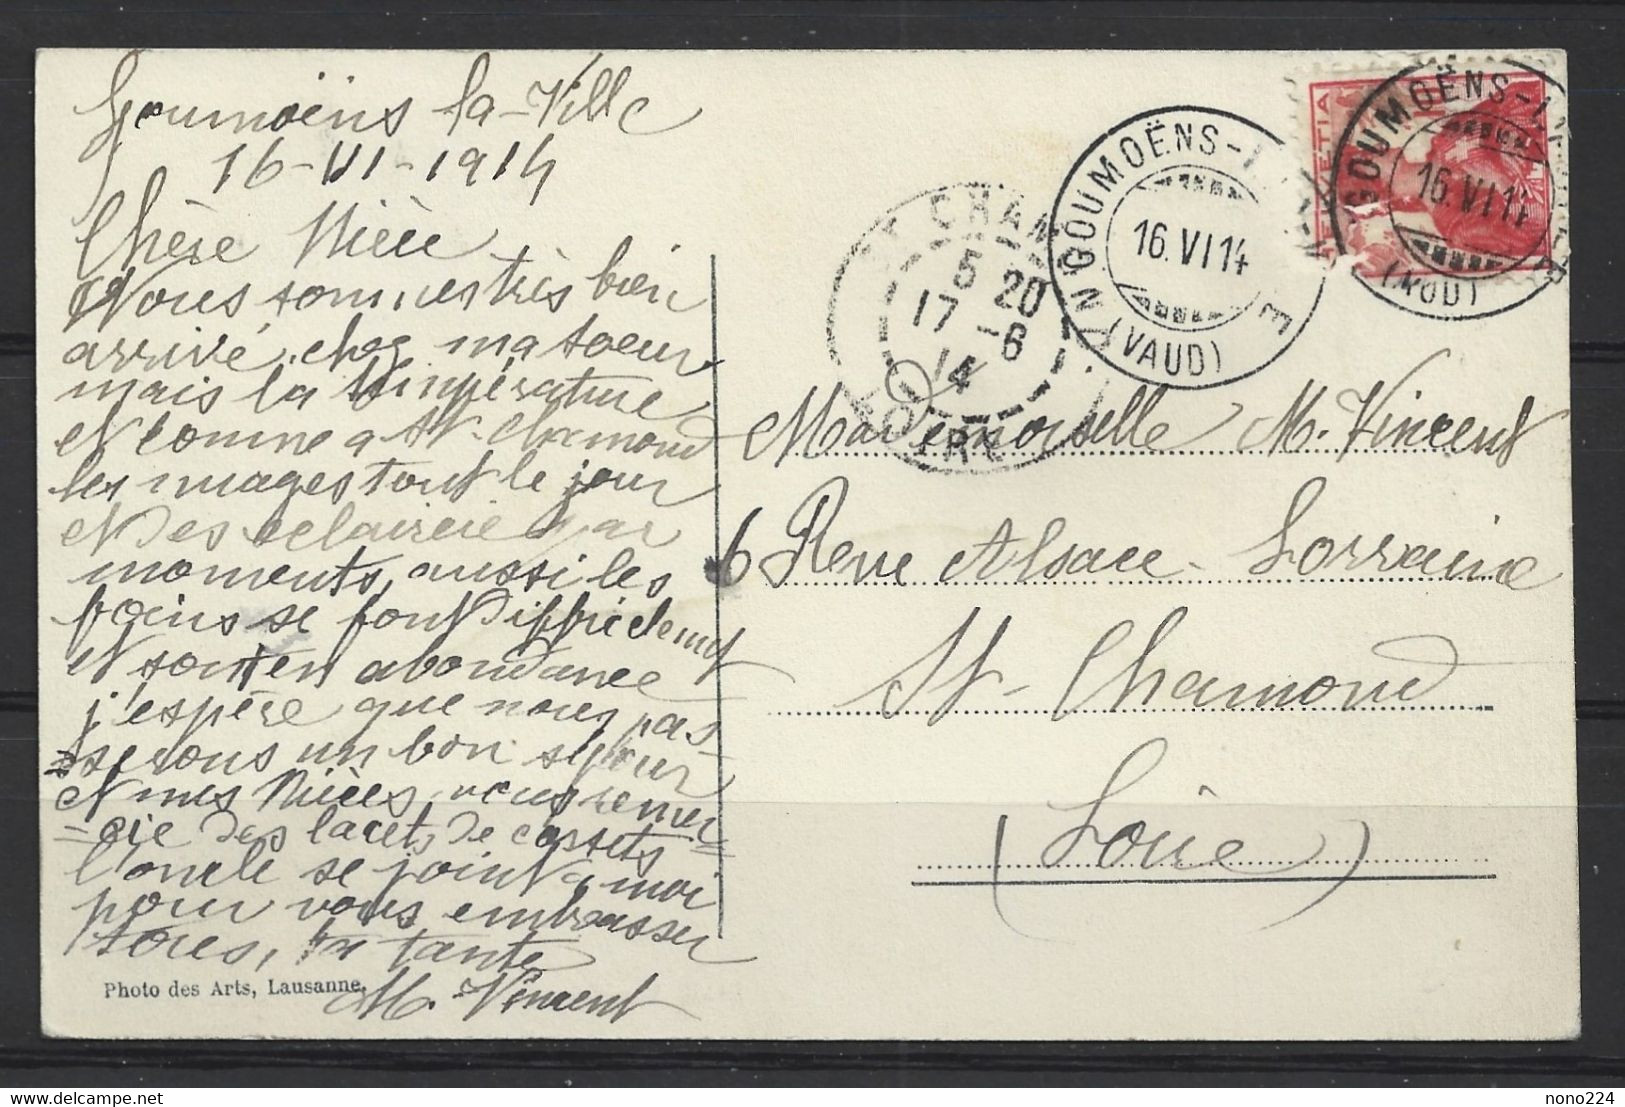 Goumoëns la-Ville
16-VI-1914
Chère Nièce
Nous sommes très bien
arrivé chez ma soeur
mais la température
et comme a St-Chamond
les nuages tout le jour
et des eclaircie par
moments, aussi les
foins se font difficilement
et sont en abondance
j'espère que nous pas-
=serons un bon sejour
et mes Nièces vous remer=
=cie des lacets de corsets
l'oncle se joint a moi
pour vous embrasser
toues, ta tante
M. Vincent
Photo des Arts, Lausanne.
GOUMOËNS-
16.VI14
(VAUD)
HELVETIA
GOUMOËNS-LA-VILLE
16.VI14
(VAUD)
ST CHAM
5 20
17 -6
14
LOIRE
Mademoiselle M. Vincent
6 Rue Alsace-Lorraine
St-Chamond
(Loire)
nono224